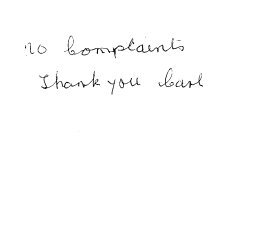 no complaints
Thank you Carl